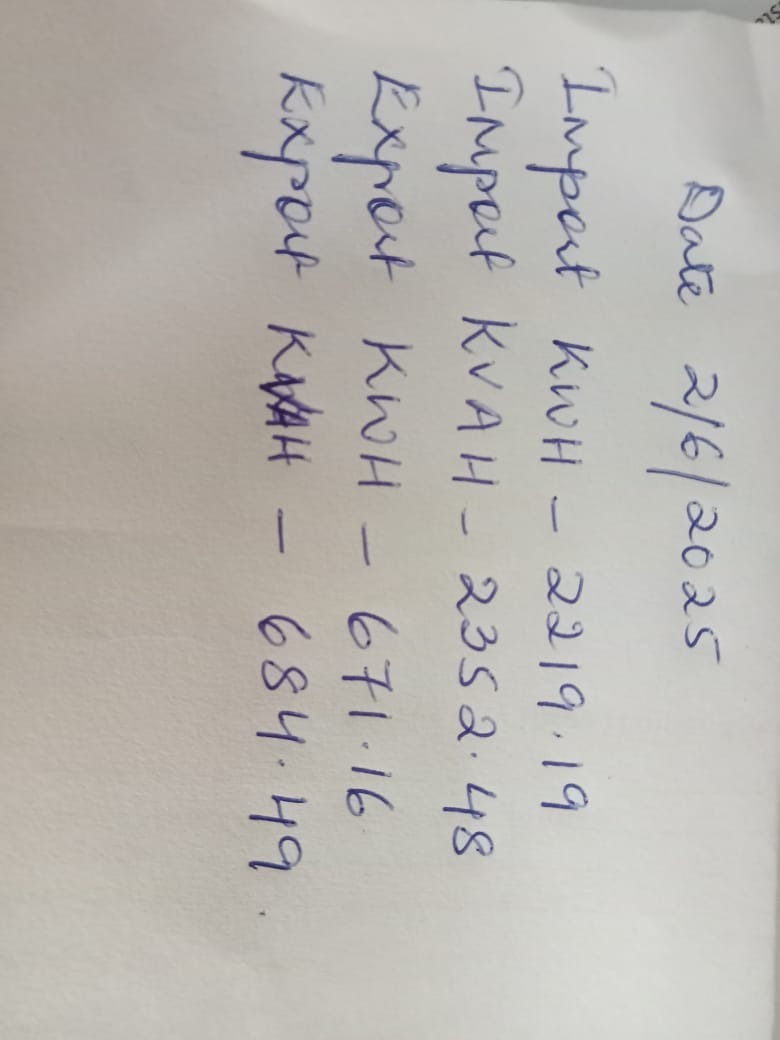 Date 2/6/2025
Import KWH - 2219.19
Import KVAH - 2352.48
Export KWH - 671.16
Export KVAH - 684.49